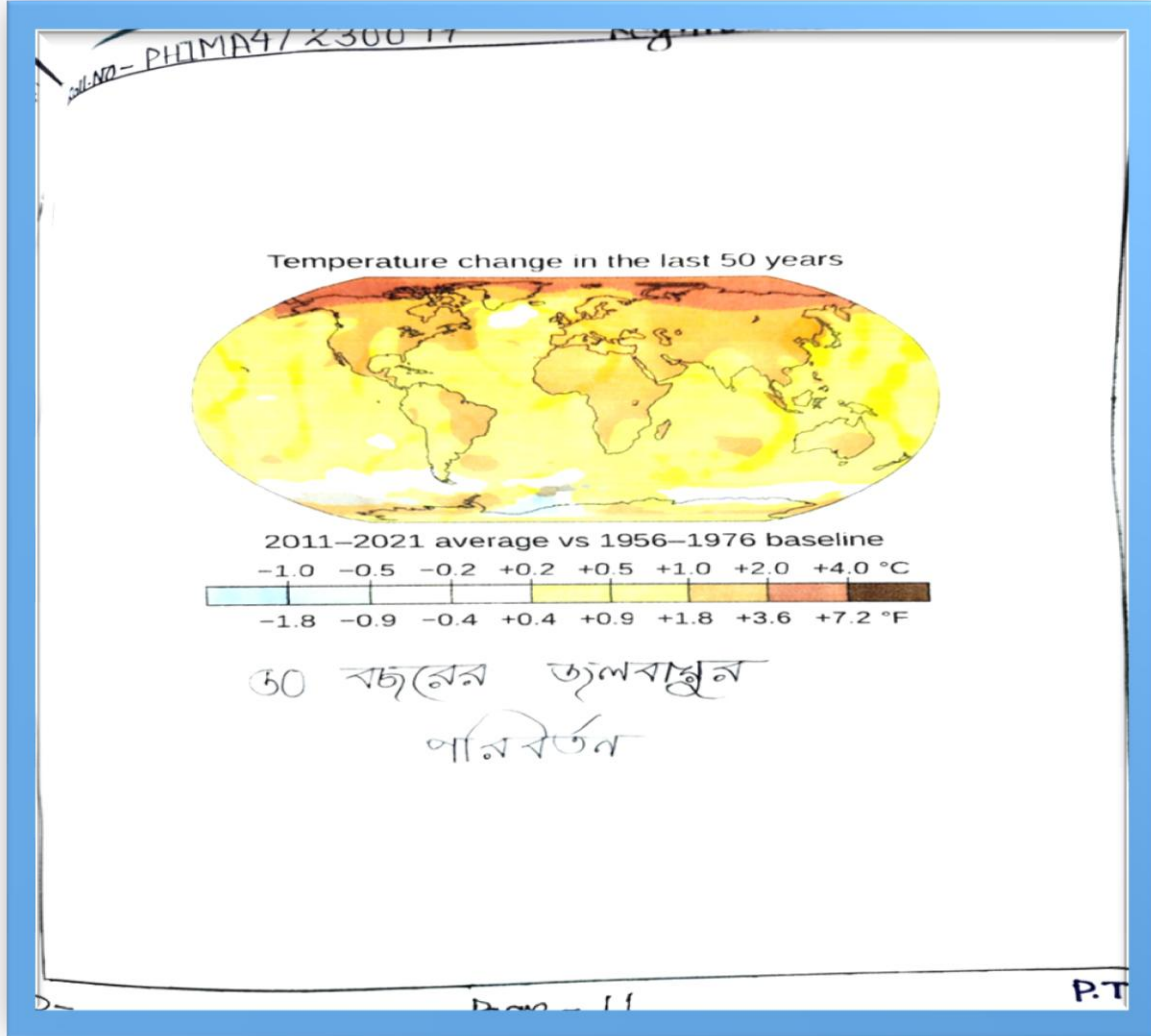 Roll.NO- PHIMA4/23001
Temperature change in the last 50 years
2011–2021 average vs 1956–1976 baseline
−1.0 −0.5 −0.2 +0.2 +0.5 +1.0 +2.0 +4.0 °C
−1.8 −0.9 −0.4 +0.4 +0.9 +1.8 +3.6 +7.2 °F
৫০ বছরের জলবায়ুর
পরিবর্তন
P.T